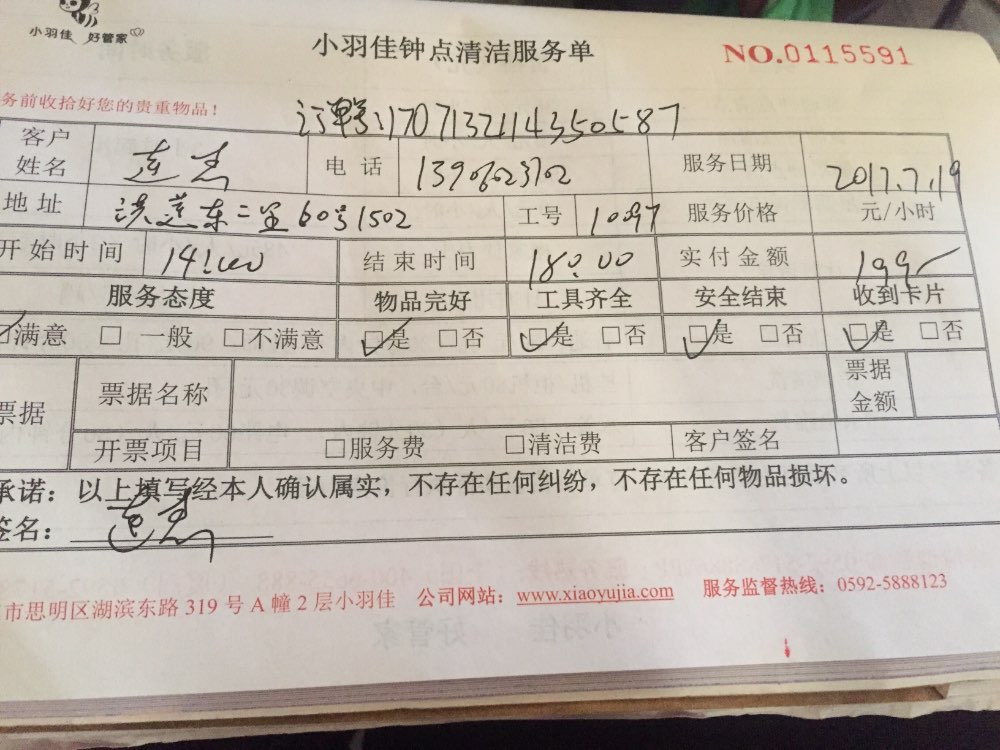 小羽佳 好管家
小羽佳钟点清洁服务单
NO.0115591
务前收拾好您的贵重物品!
订单号:170713211435058７
客户姓名 连杰 电话 13906023702 服务日期 2017.7.19
地址 洪莲东二里60号1502 工号 1097 服务价格 元/小时
开始时间 14:00 结束时间 18:00 实付金额 199
服务态度 物品完好 工具齐全 安全结束 收到卡片
☑满意 □ 一般 □不满意 ☑是 □否 ☑是 □否 ☑是 □否 ☑是 □否
票据 票据名称 票据金额
开票项目 □服务费 □清洁费 客户签名
承诺：以上填写经本人确认属实，不存在任何纠纷，不存在任何物品损坏。
签名： 连杰
市思明区湖滨东路 319 号 A 幢 2 层小羽佳 公司网站：www.xiaoyujia.com 服务监督热线：0592-5888123